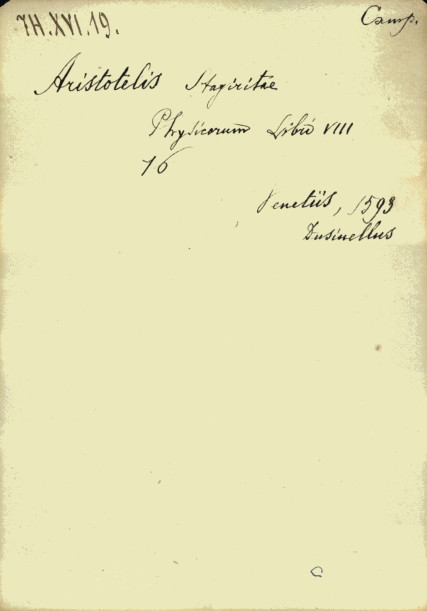 7H.XVI.19.
Camp.
Aristotelis Stagiritae
Physicorum Libri VIII
16
Venetiis, 1593
Dusinellus
C